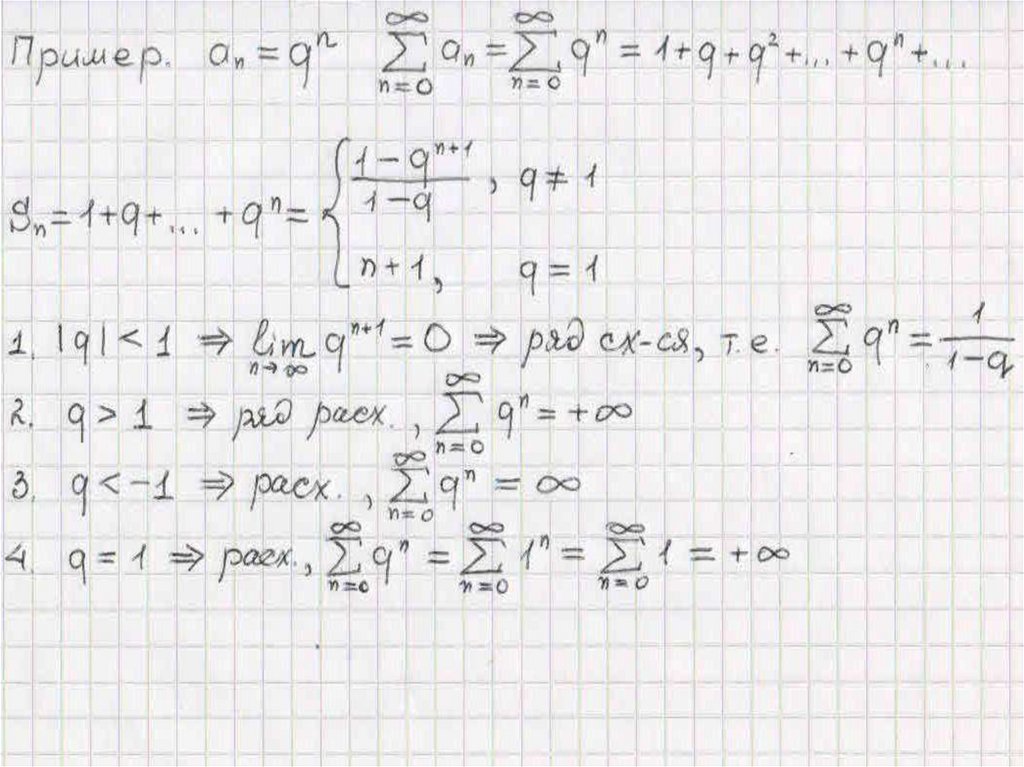 Пример. aₙ = qⁿ ∑_{n=0}^{∞} aₙ = ∑_{n=0}^{∞} qⁿ = 1 + q + q² + ... + qⁿ + ...
Sₙ = 1 + q + ... + qⁿ = { (1 − qⁿ⁺¹)/(1 − q), q ≠ 1
n + 1, q = 1
1. |q| < 1 ⇒ lim_{n→∞} qⁿ⁺¹ = 0 ⇒ ряд сх-ся, т.е. ∑_{n=0}^{∞} qⁿ = 1/(1 − q)
2. q > 1 ⇒ ряд расх., ∑_{n=0}^{∞} qⁿ = +∞
3. q < −1 ⇒ расх., ∑_{n=0}^{∞} qⁿ = ∞
4. q = 1 ⇒ расх., ∑_{n=0}^{∞} qⁿ = ∑_{n=0}^{∞} 1ⁿ = ∑_{n=0}^{∞} 1 = +∞